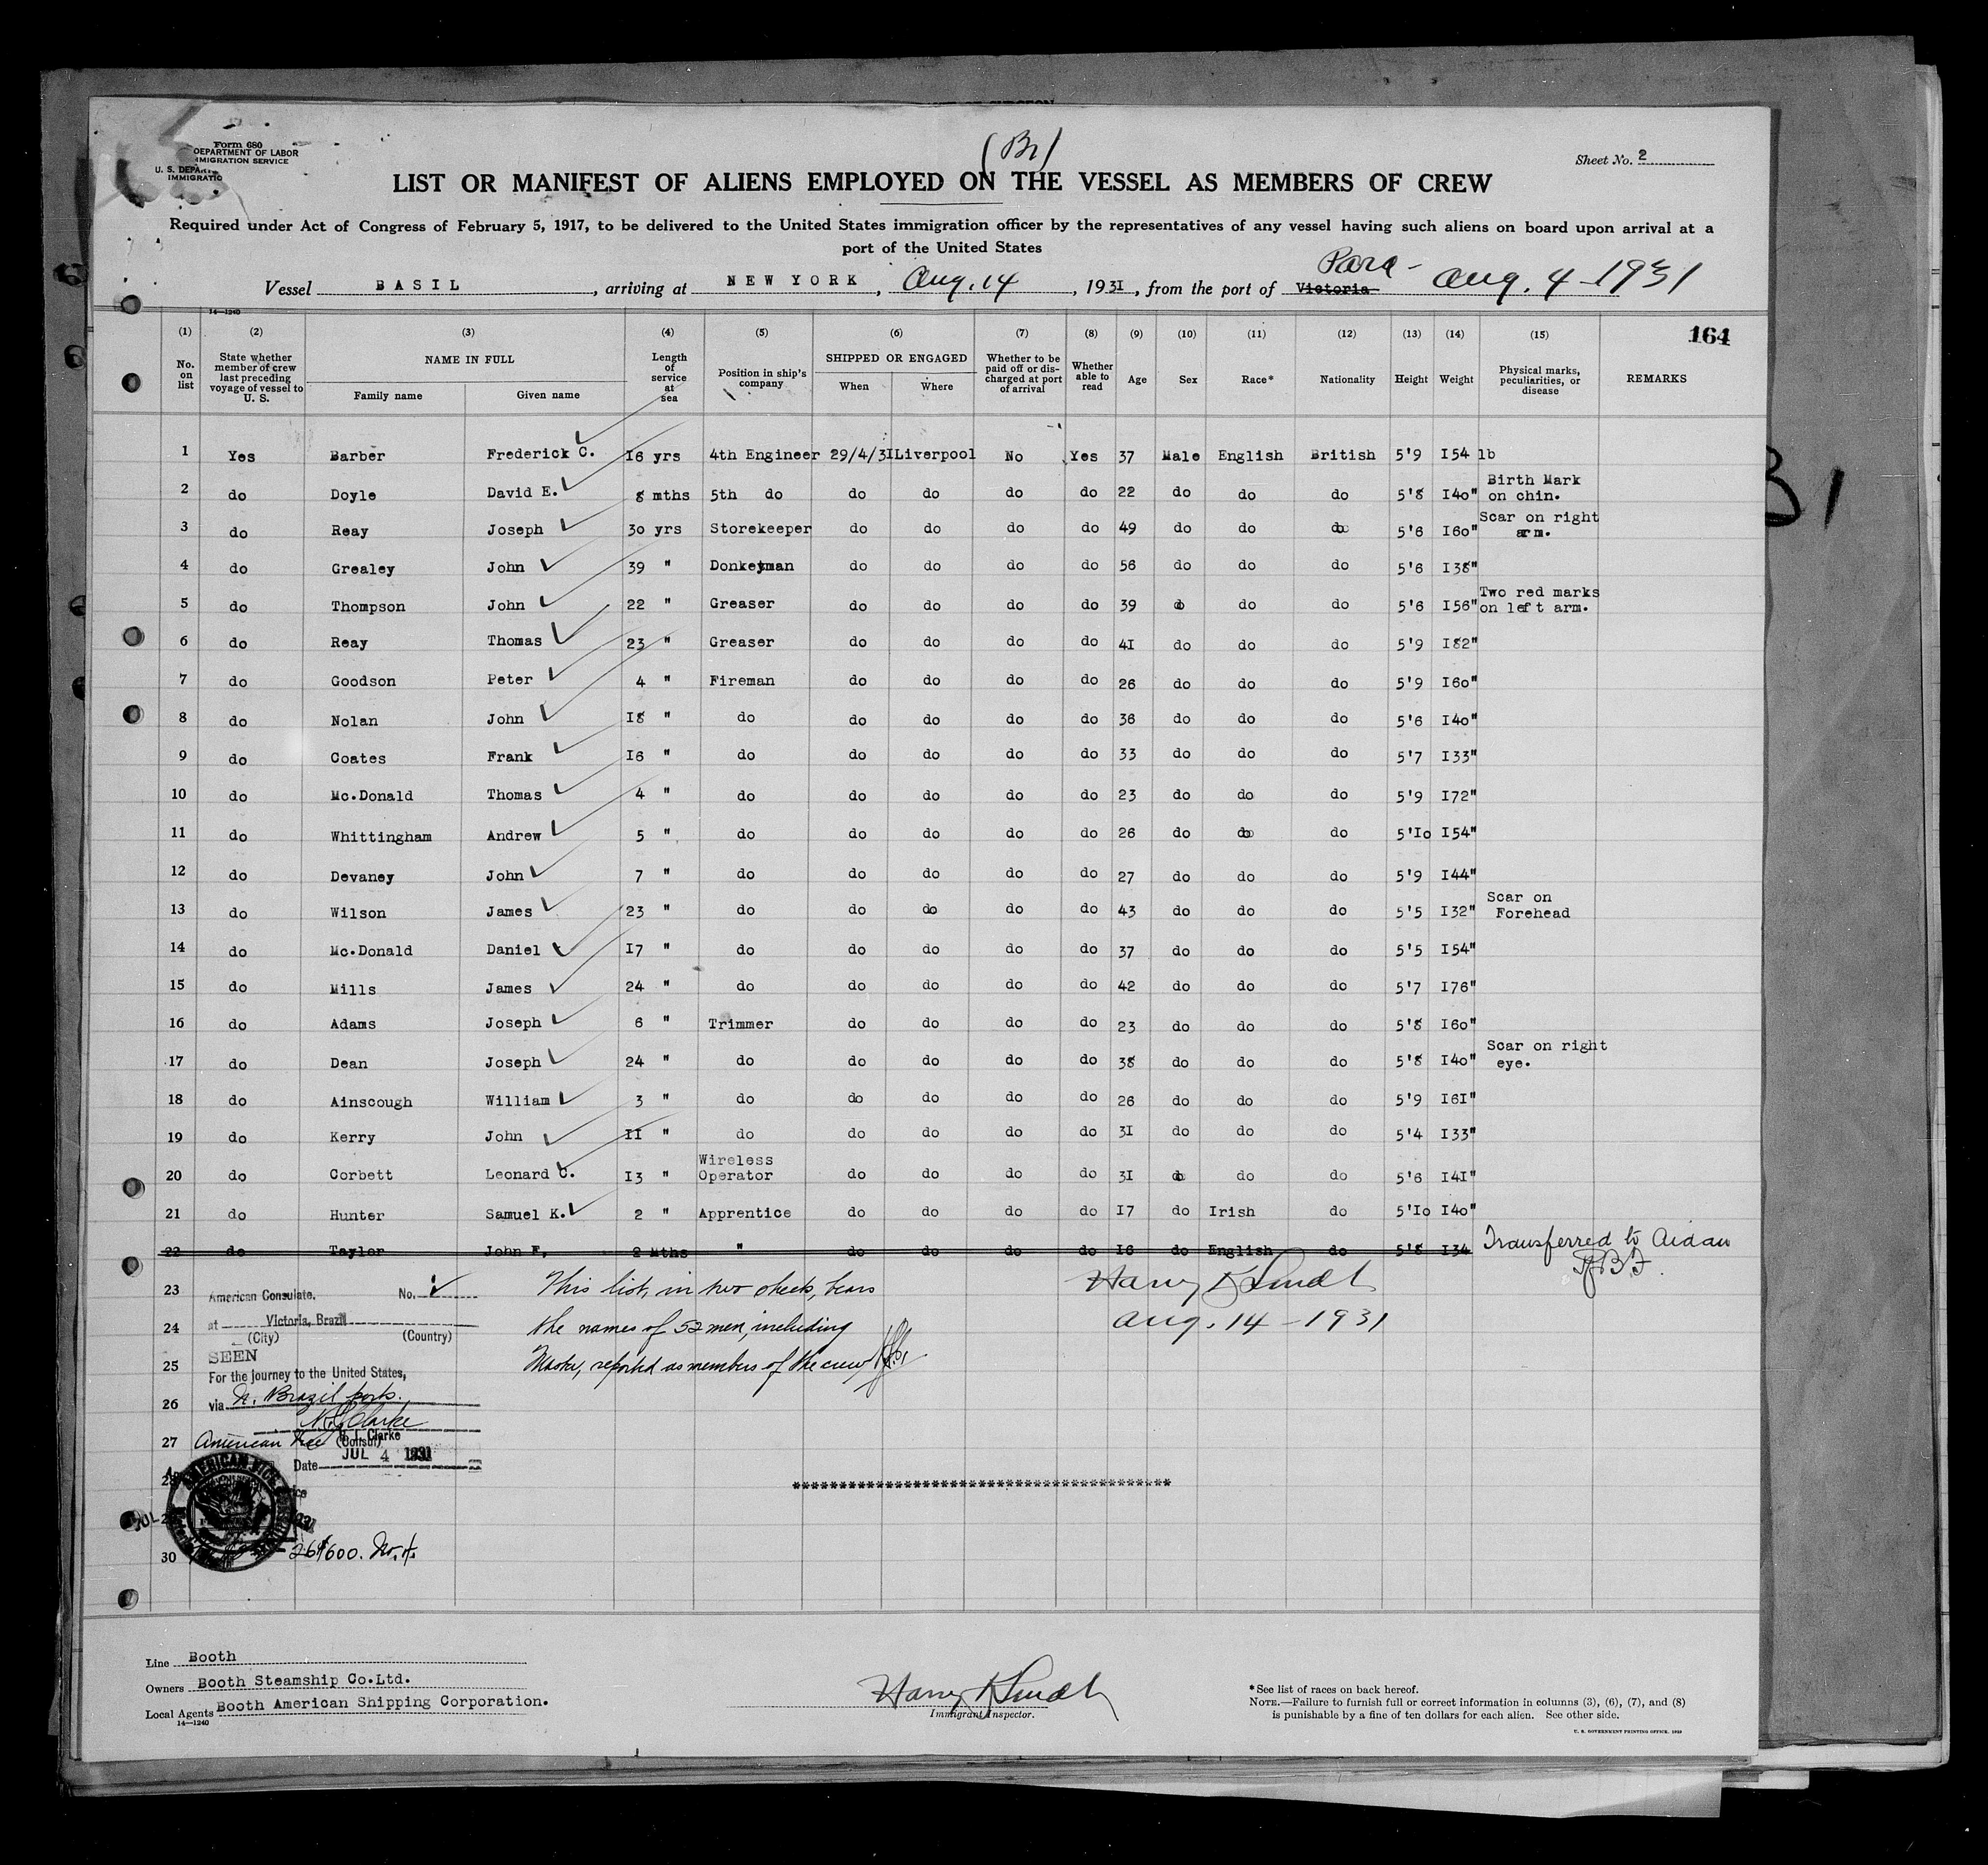 (Br)
Form 680
DEPARTMENT OF LABOR
IMMIGRATION SERVICE
U. S. DEPAR
IMMIGRATIO
Sheet No. 2
LIST OR MANIFEST OF ALIENS EMPLOYED ON THE VESSEL AS MEMBERS OF CREW
Required under Act of Congress of February 5, 1917, to be delivered to the United States immigration officer by the representatives of any vessel having such aliens on board upon arrival at a
port of the United States
Vessel BASIL, arriving at NEW YORK, Aug. 14, 1931, from the port of Victoria Para - Aug. 4 - 1931
14—1240
164
(1) (2) (3) (4) (5) (6) (7) (8) (9) (10) (11) (12) (13) (14) (15)
No. on list State whether member of crew last preceding voyage of vessel to U. S. NAME IN FULL Length of service at sea Position in ship's company SHIPPED OR ENGAGED Whether to be paid off or discharged at port of arrival Whether able to read Age Sex Race* Nationality Height Weight Physical marks, peculiarities, or disease REMARKS
Family name Given name When Where
1 Yes Barber Frederick C. 16 yrs 4th Engineer 29/4/31 Liverpool No Yes 37 Male English British 5'9 154 lb
2 do Doyle David E. 8 mths 5th do do do do do 22 do do do 5'8 140" Birth Mark on chin.
3 do Reay Joseph 30 yrs Storekeeper do do do do 49 do do do 5'6 160" Scar on right arm.
4 do Grealey John 39 " Donkeyman do do do do 56 do do do 5'6 138"
5 do Thompson John 22 " Greaser do do do do 39 do do do 5'6 156" Two red marks on left arm.
6 do Reay Thomas 23 " Greaser do do do do 41 do do do 5'9 182"
7 do Goodson Peter 4 " Fireman do do do do 26 do do do 5'9 160"
8 do Nolan John 18 " do do do do do 36 do do do 5'6 140"
9 do Coates Frank 16 " do do do do do 33 do do do 5'7 133"
10 do Mc.Donald Thomas 4 " do do do do do 23 do do do 5'9 172"
11 do Whittingham Andrew 5 " do do do do do 26 do do do 5'10 154"
12 do Devaney John 7 " do do do do do 27 do do do 5'9 144"
13 do Wilson James 23 " do do do do do 43 do do do 5'5 132" Scar on Forehead
14 do Mc.Donald Daniel 17 " do do do do do 37 do do do 5'5 154"
15 do Mills James 24 " do do do do do 42 do do do 5'7 176"
16 do Adams Joseph 6 " Trimmer do do do do 23 do do do 5'8 160"
17 do Dean Joseph 24 " do do do do do 38 do do do 5'8 140" Scar on right eye.
18 do Ainscough William 3 " do do do do do 26 do do do 5'9 161"
19 do Kerry John 11 " do do do do do 31 do do do 5'4 133"
20 do Corbett Leonard C. 13 " Wireless Operator do do do do 31 do do do 5'6 141"
21 do Hunter Samuel K. 2 " Apprentice do do do do 17 do Irish do 5'10 140"
22 do Taylor John F. 2 mths " do do do do 16 do English do 5'8 134 Transferred to Aidan
23
24
25
26
27
28
29
30
American Consulate, No.
at Victoria, Brazil
(City) (Country)
SEEN
For the journey to the United States,
via N. Brazil ports.
N. L. Clarke
American Vice (Consul)
Date JUL 4 1931
26$600.
This list, in two sheets, bears
the names of 52 men, including
Master, reported as members of the crew
Aug. 14 - 1931
****************************************
Line Booth
Owners Booth Steamship Co.Ltd.
Local Agents Booth American Shipping Corporation.
14—1240
Immigrant Inspector.
*See list of races on back hereof.
NOTE.—Failure to furnish full or correct information in columns (3), (6), (7), and (8)
is punishable by a fine of ten dollars for each alien. See other side.
U. S. GOVERNMENT PRINTING OFFICE.